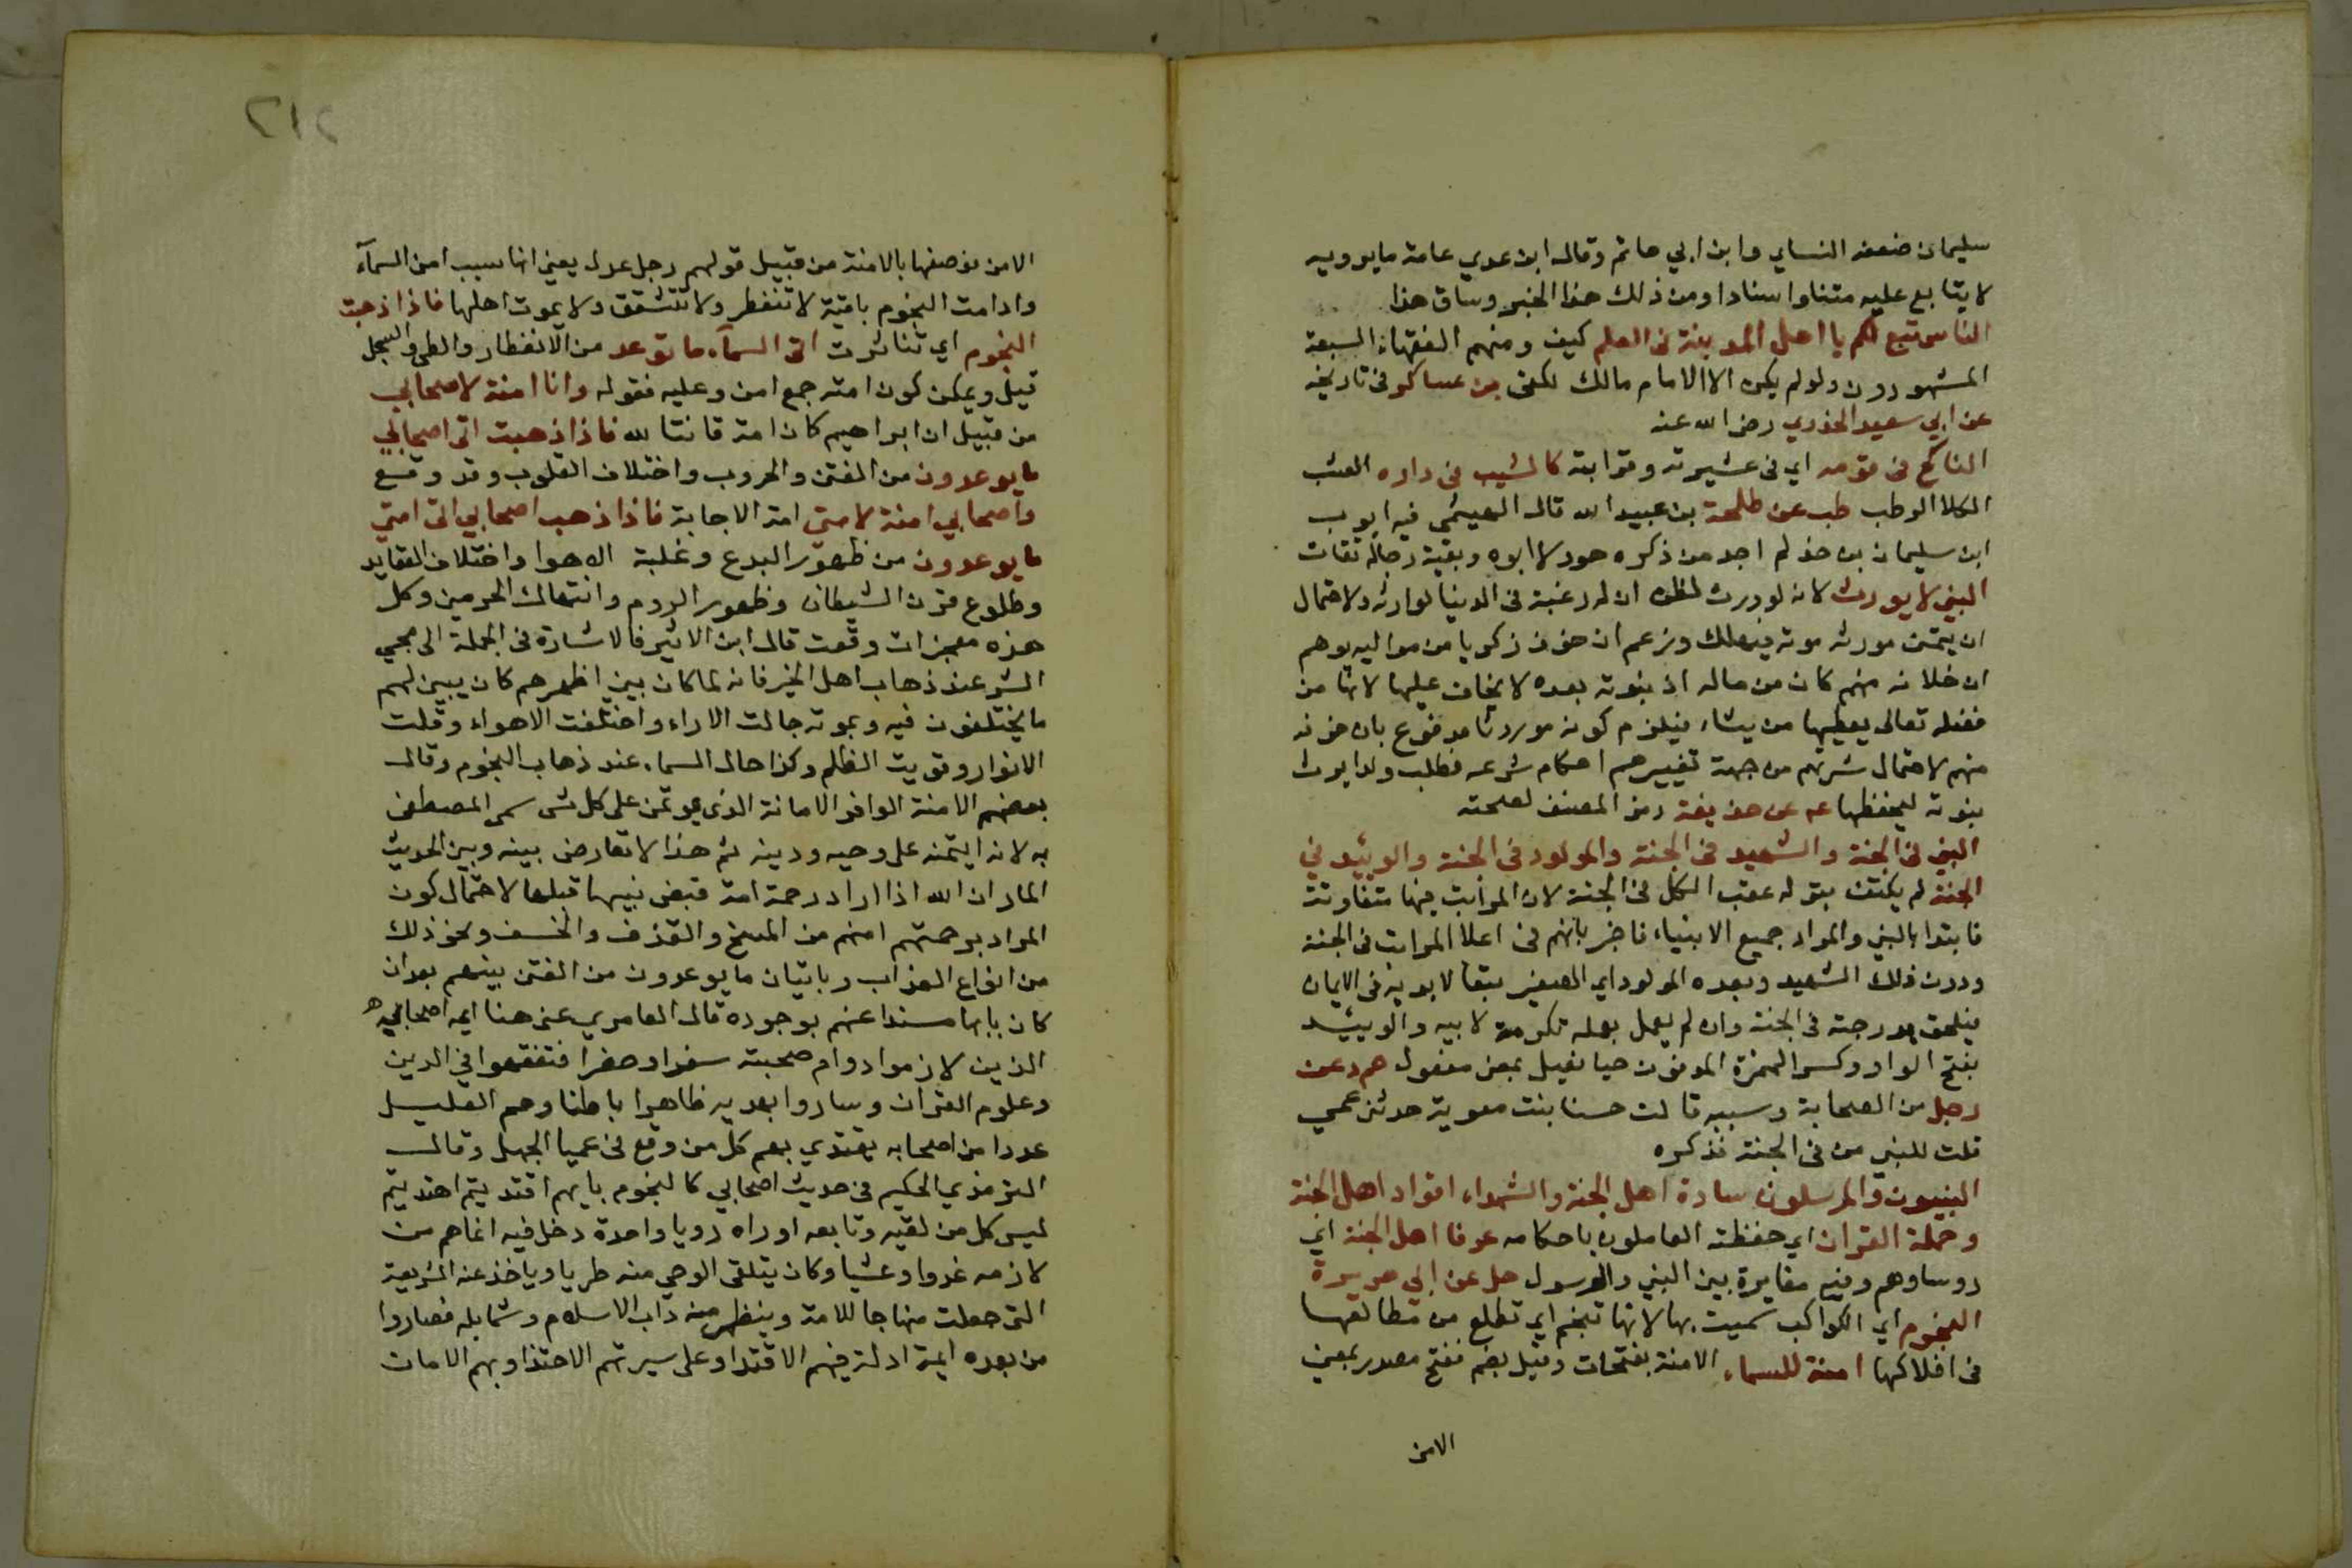 سليمان ضعفه النساي وابن ابي حاتم وقال ابن عدي عامة مايرويه
لا يتابع عليه متنا واسنادا ومن ذلك هذا الخبر وساق هذا
الناس تبع لكم يا اهل المدينة في العلم كيف ومنهم الفقهاء السبعة
المشهورون ولو لم يكن الا الامام مالك لكفى بن عساكر في تاريخه
عن ابي سعيد الخدري رضي الله عنه
الناكح في قومه اي في عشيرته وقرابته كالمشيب في داره العشب
الكلا الرطب طب عن طلحة بن عبيد الله قال الهيثمي فيه ايوب
ابن سليمان بن حذلم اجد من ذكره هو ولا ابوه وبقية رجاله ثقات
النبي لا يورث لانه لو ورث لظن ان له رغبة في الدنيا لوارثه ولاحتمال
ان يتمنى مورثه موته فيهلك وزعم ان خوف زكريا من مواليه يوهم
ان خلافه منهم كان من ماله اذ نبوته بعده لا يخاف عليها لانها من
فضله تعالى يعطيها من يشاء فيلزم كونه موروثا مدفوع بان خوفه
منهم لاحتمال شرتهم من جهة تغييرهم احكام شرعه فطلب ولدا يرث
نبوته ليحفظها عم عن حذيفة رمز المصنف لصحته
النبي في الجنة والشهيد في الجنة والمولود في الجنة والوئيد في
الجنة لم يكتف بقوله عقب الكل في الجنة لان المراتب فيها متفاوتة
فابتدا بالنبي والمراد جميع الانبياء فاخبر بانهم في اعلا المراتب في الجنة
ودون ذلك الشهيد وبعده المولود اي الصغير بتعا لابويه في الايمان
فيلحق بدرجته في الجنة وان لم يعمل بعمله تكرمة لابيه والوييد
بفتح الواو وكسر الهمزة المدفون حيا فعيل بمعنى مفعول حم د عن
رجل من الصحابة وسببه قالت حسنا بنت معوية حدثني عمي
قلت للنبي من في الجنة فذكره
النبيون والمرسلون سادة اهل الجنة والشهداء اقواد اهل الجنة
وحملة القران اي حفظته العاملون باحكامه عرفا اهل الجنة اي
روساوهم وفيه مغايرة بين النبي والرسول حل عن ابي هريرة
النجوم اي الكواكب سميت بها لانها تنجم اي تطلع من مطالعها
في افلاكها امنة للسماء الامنة بفتحات وقيل بضم ففتح مصدر بمعنى
الامن
٢١٢
الامن فوصفها بالامنة من قبيل قولهم رجل عدل يعني انها سبب امن السمآء
وادامت النجوم باقية لا تنفطر ولا تتشقق ولا يموت اهلها فاذا ذهبت
النجوم اي تناثرت اتى السمآء ما توعد من الانفطار والطي والسجل
قيل ويمكن كون امنة جمع امن وعليه فقوله وانا امنة لاصحابي
من قبيل ان ابراهيم كان امة قانتا لله فاذا ذهبت اتى اصحابي
مايوعدون من الفتن والحروب واختلاف القلوب وقد وقع
واصحابي امنة لامتي امة الاجابة فاذا ذهب اصحابي اتى امتي
مايوعدون من ظهور البدع وغلبة الاهوا واختلاف العقايد
وطلوع قرن الشيطان وظهور الروم وانتهاك الحرمين وكل
هذه معجزات وقعت قال ابن الاثير فالاشارة في الجملة الى مجي
الشر عند ذهاب اهل الخير فانه لما كان بين اظهرهم كان يبين لهم
ما يختلفون فيه وبموته جالت الاراء واختلفت الاهواء وقلت
الانوار وقويت الظلم وكذا حال السماء عند ذهاب النجوم وقال
بعضهم الامنة الوافر الامانة الذي يوتمن على كل شي سمى المصطفى
به لانه ايتمنه على وحيه ودينه ثم هذا لا تعارض بينه وبين الحديث
المار ان الله اذا اراد رحمة امة قبض نبيها قبلها لاحتمال كون
المراد برحمتهم امنهم من المسخ والقذف والخسف ونحو ذلك
من انواع العذاب وباتيان ما يوعدون من الفتن بينهم بعد ان
كان بابها مسندا عنهم بوجوده قال العامري عنى هنا ايمة اصحابه
الذين لازموا دوام صحبته سفرا وحضرا فتفقهوا في الدين
وعلوم القران وساروا بهديه ظاهرا باطنا وهم القليل
عددا من اصحابه يقتدي بهم كل من وقع في عميا الجهل وقال
الترمذي الحكيم في حديث اصحابي كالنجوم بايهم اقتديتم اهتديتم
ليس كل من لقيه وتابعه او راه رويا واحدة دخل فيه انما هم من
لازمه غدوا وعشيا وكان يتلقى الوحي منه طريا وياخذ عنه الشريعة
التي جعلت منهاجا للامة وينظر منه داب الاسلام وشمايله فصاروا
من بعده ايمة ادلة فبهم الاقتدا وعلى سيرتهم الاحتذا وبهم الامان